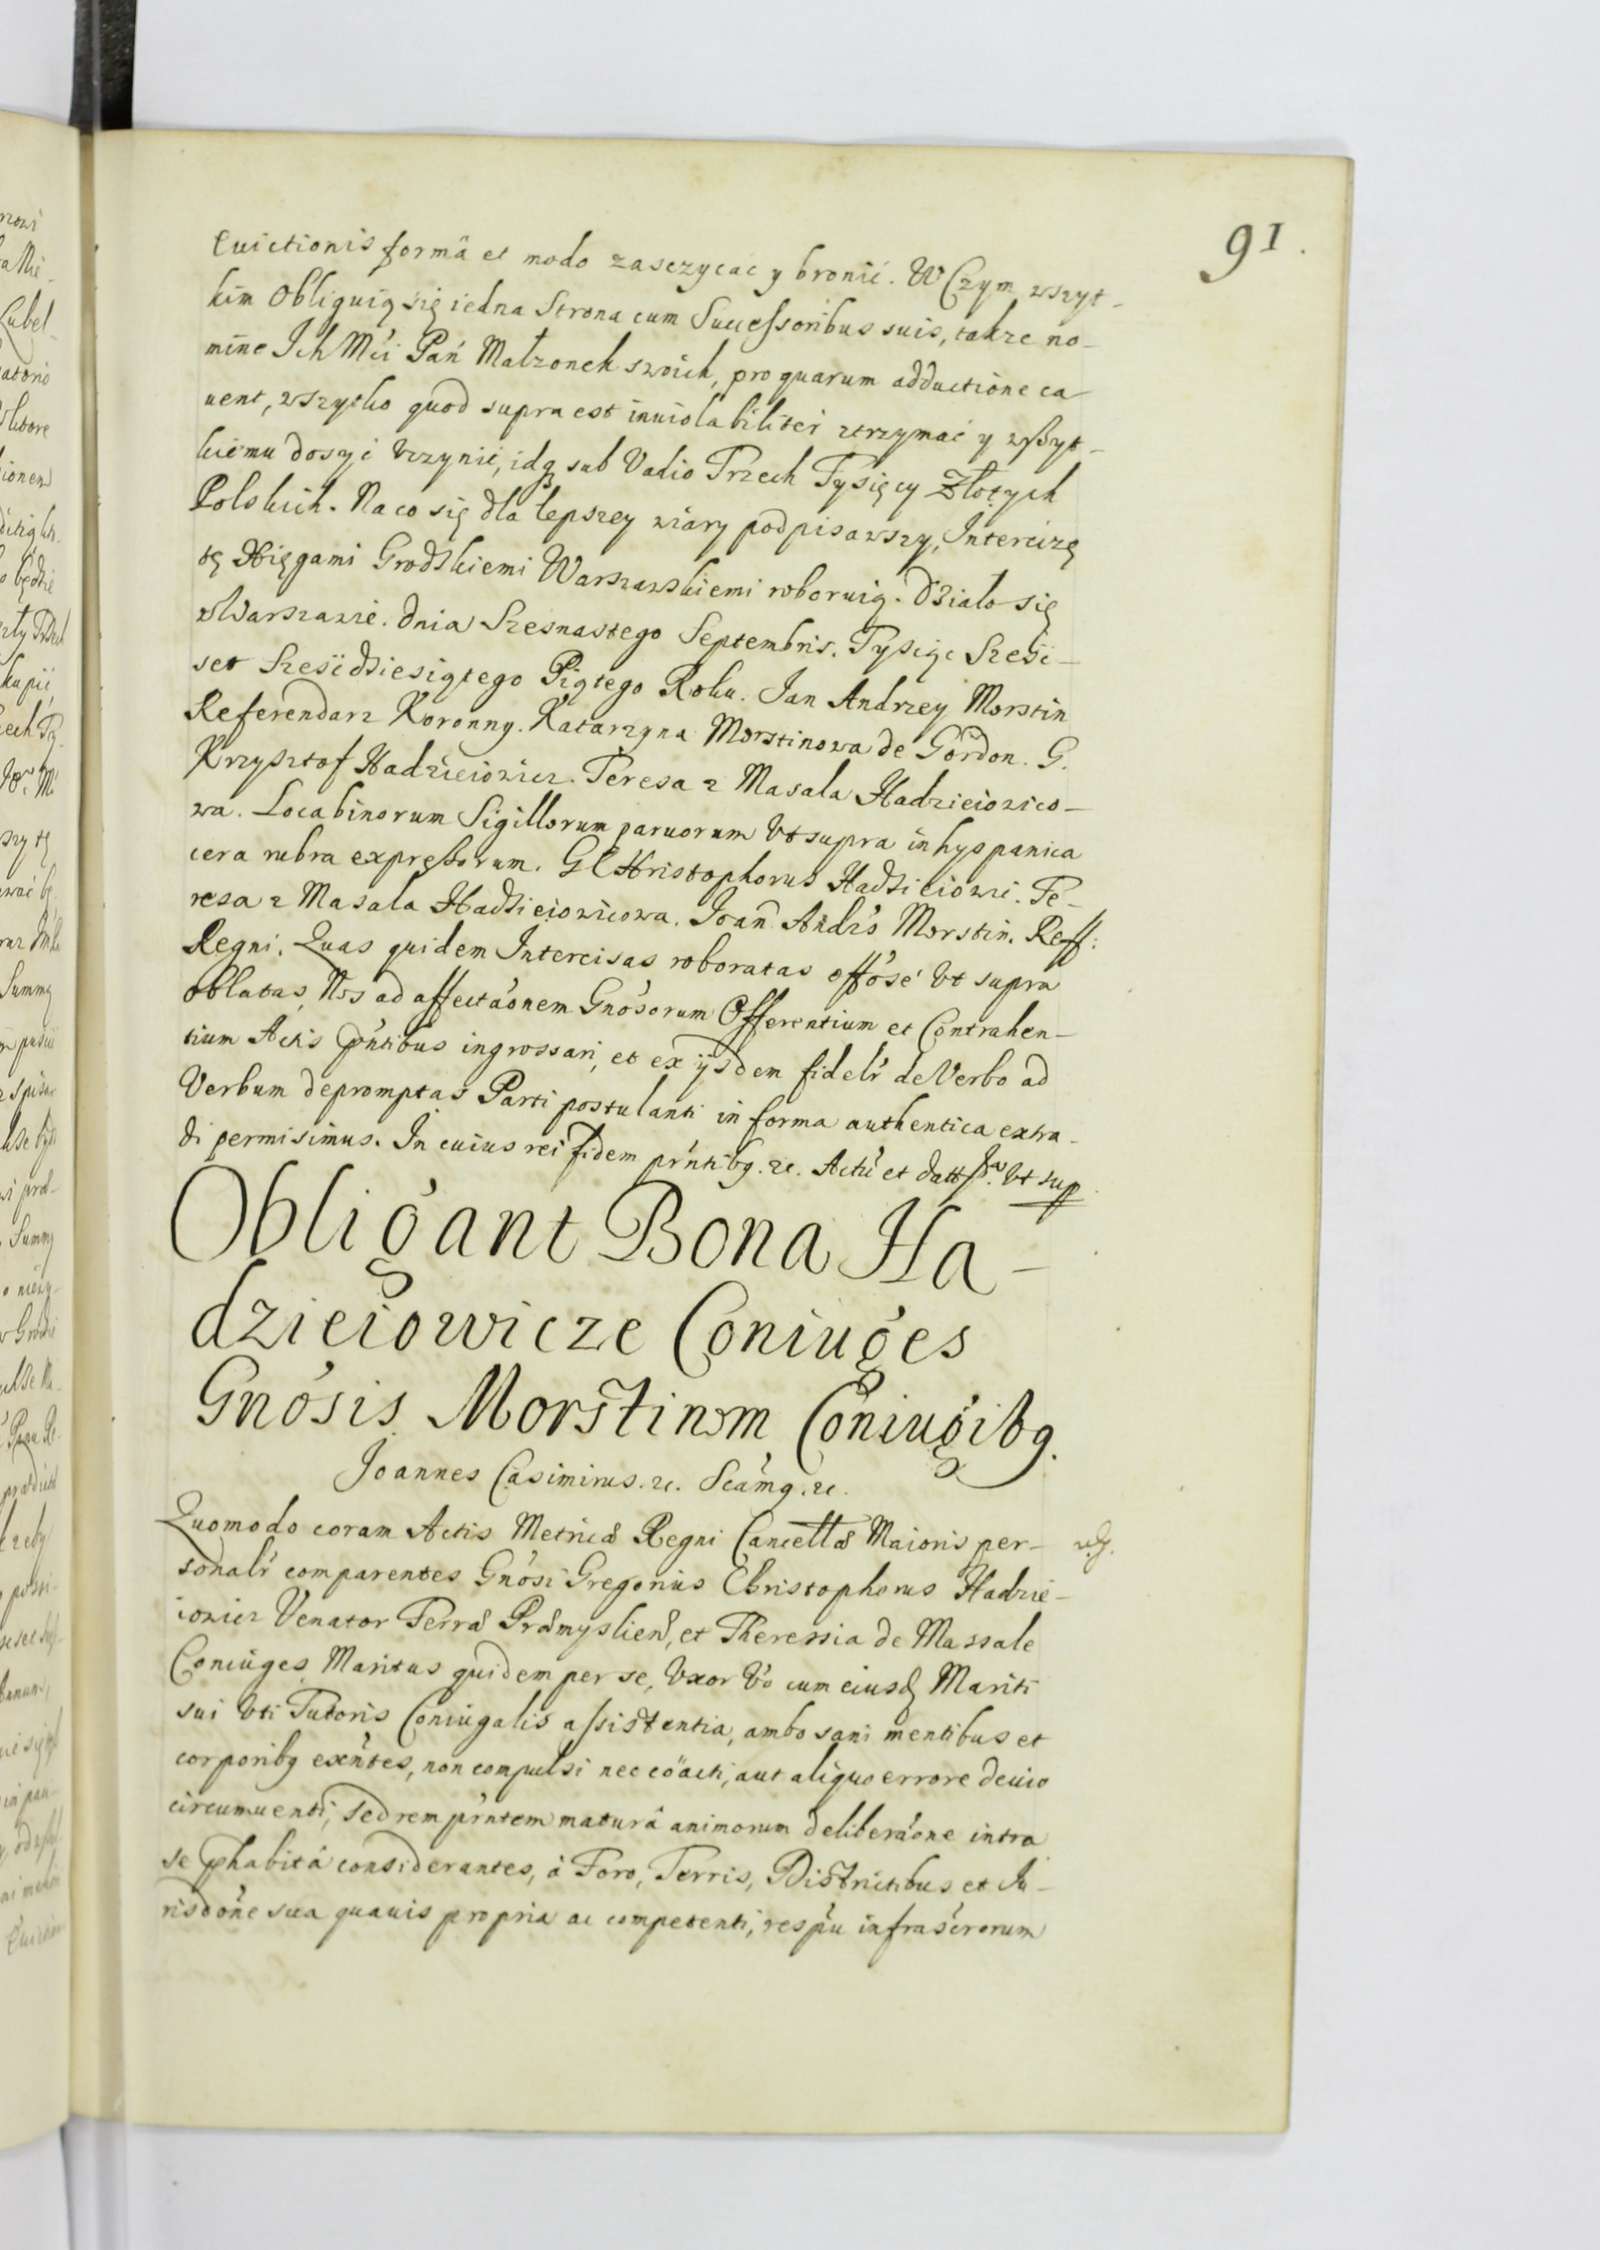 91.
Euictionis formâ et modo zasczycac y bronić. W Czym wszyt-
kim Obliguią się iedna Strona cum Successoribus suis, takze no-
mine Ich Mći Pań Małzonek swoich, pro quarum adductione ca-
uent, wszytko quod supra est inuiolabiliter ztrzymać y wszyt-
kiemu dosyć vczynić, idq3 sub Vadio Trzech Tysięcy Złotych
Polskich. Na co się dla lepszey wiary podpisawszy, Intercizę
tę Xięgami Grodskiemi Warszawskiemi roboruią. Działo się
w Warszawie. dnia Szesnastego Septembris. Tysiąc Sześć-
set Sześćdziesiątego Piątego Roku. Jan Andrzey Morstin
Referendarz Koronny. Katarzyna Morstinowa de Gordon. G.
Krzysztof Hadzieiowicz. Teresa z Masala Hadzieiowico-
wa. Loca binorum Sigillorum paruorum Vt supra in hyspanica
cera rubra expressorum. G Christophorus Hadzieiowic. Te-
resa z Masala Hadzieiowicowa. Joañ Andrs Morstin. Reff:
Regni. Quas quidem Intercisas roboratas offóse Vt supra
oblatas, Nos ad affectaónem Gnósorum Offerentium et Contrahen-
tium Actis pñtibus ingrossari, et ex ijsdem fidelr de Verbo ad
Verbum depromptas Parti postulanti in forma authentica extra-
di permisimus. In cuius rei fidem prñtibq. rc. Actũ et datt Vt sup
Obligant Bona Ha-
dzieiowicze Coniuges
Gnósis Morstinom Coniugibq.
Joannes Casimirus. rc. Scámq. rc.
Quomodo coram Actis Metricæ Regni Cancellæ Maioris per-
sonalr comparentes Gnósi Gregorius Christophorus Hadzie-
iowicz Venator Terræ Præmyslien, et Theressia de Massale
Coniuges, Maritus quidem per se, Vxor Vo cum eiusd Mariti
sui Vti Tutoris Coniugalis assistentia, ambo sani mentibus et
corporibq exñtes, non compulsi nec cöacti, aut aliquo errore deuio
circumuenti, sed rem prñtem maturâ animorum deliberaóne intra
se phabitâ considerantes, à Foro, Terris, Districtibus et Iu-
risdóne sua quauis propria ac competenti, respu infrascrorum